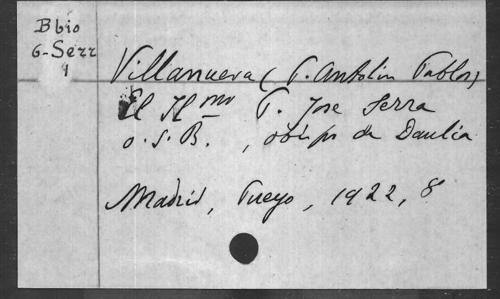 Bbio
6-Serr
1
Villanueva (P. Antolin Pablos)
El Ilmo P. Jose Serra
O.S.B., obispo de Daulia
Madrid, Pueyo, 1922, 8º